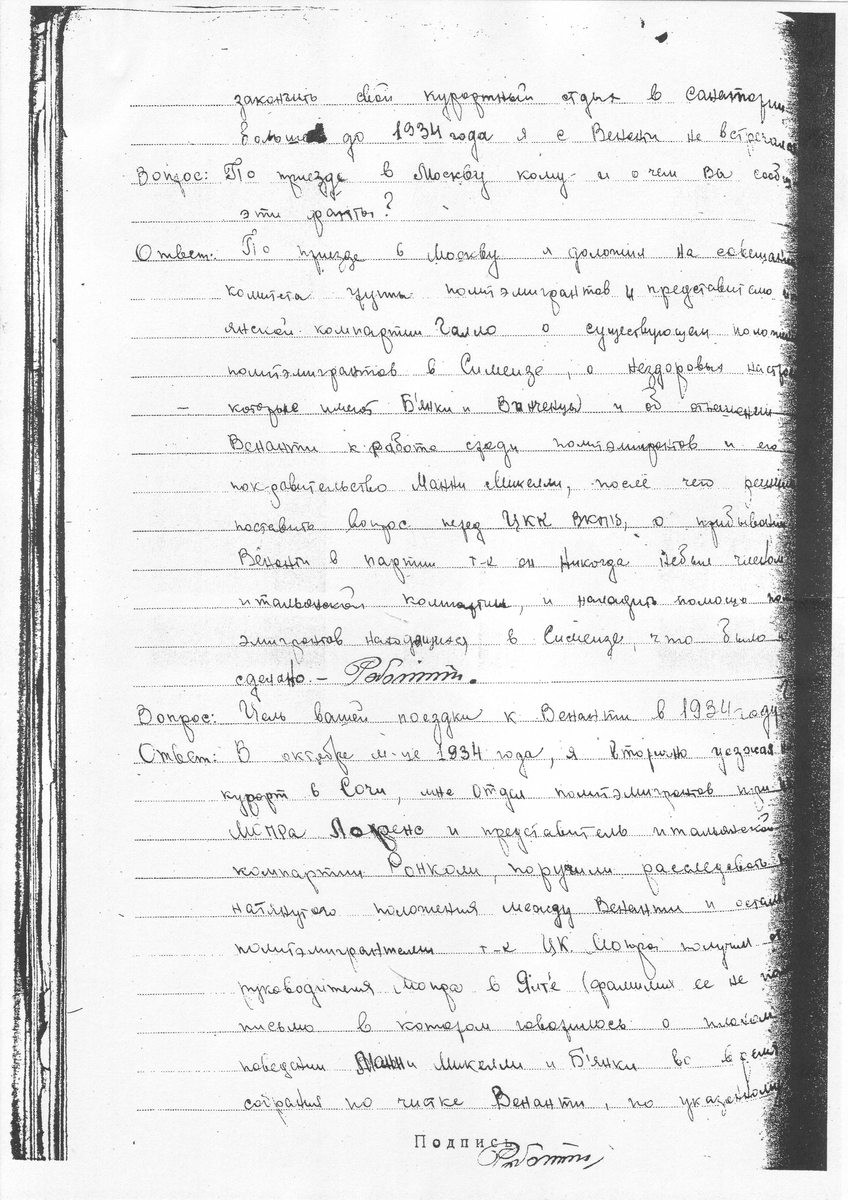 закончить свой курортный отдых в санатории
больше до 1934 года я с Венанти не встречал
Вопрос: По приезде в Москву кому и о чем Вы сообщ
эти факты?
Ответ: По приезде в Москву я доложил на совещани
комитета группы политэмигрантов и представителю
янской компартии Галло о существующем положе
политэмигрантов в Симеизе, о нездоровых настро
которые имеют Б'янки и Винченцы и об отношении
Венанти к работе среди политэмигрантов и его
пок-давительство Манни Микелли, после чего решили
поставить вопрос перед ЦКК ВКПб, о прибывании
Венанти в партии т-к он никогда небыл членом
итальянской компартии, и наладить помощь пол
эмигрантов находящихся в Симеизе, что было и
сделано. – Роботти.
Вопрос: Цель вашей поездки к Венанти в 1934 году?
Ответ: В октябре м-це 1934 года, я вторично уезжая
курорт в Сочи, мне отдел политэмигрантов при
Мопра Лоренс и представитель итальянской
компартии Ронколи, поручили расследовать
натянутого положения между Венанти и осталь
политэмигрантами т-к ЦК Мопра получил от
руководителя Мопра в Ялте (фамилия ее не по
письмо в котором говорилось о плохом
поведении Манни Микелли и Б'янки во время
собрания по чистке Венанти, по указанному
Подпись Роботти